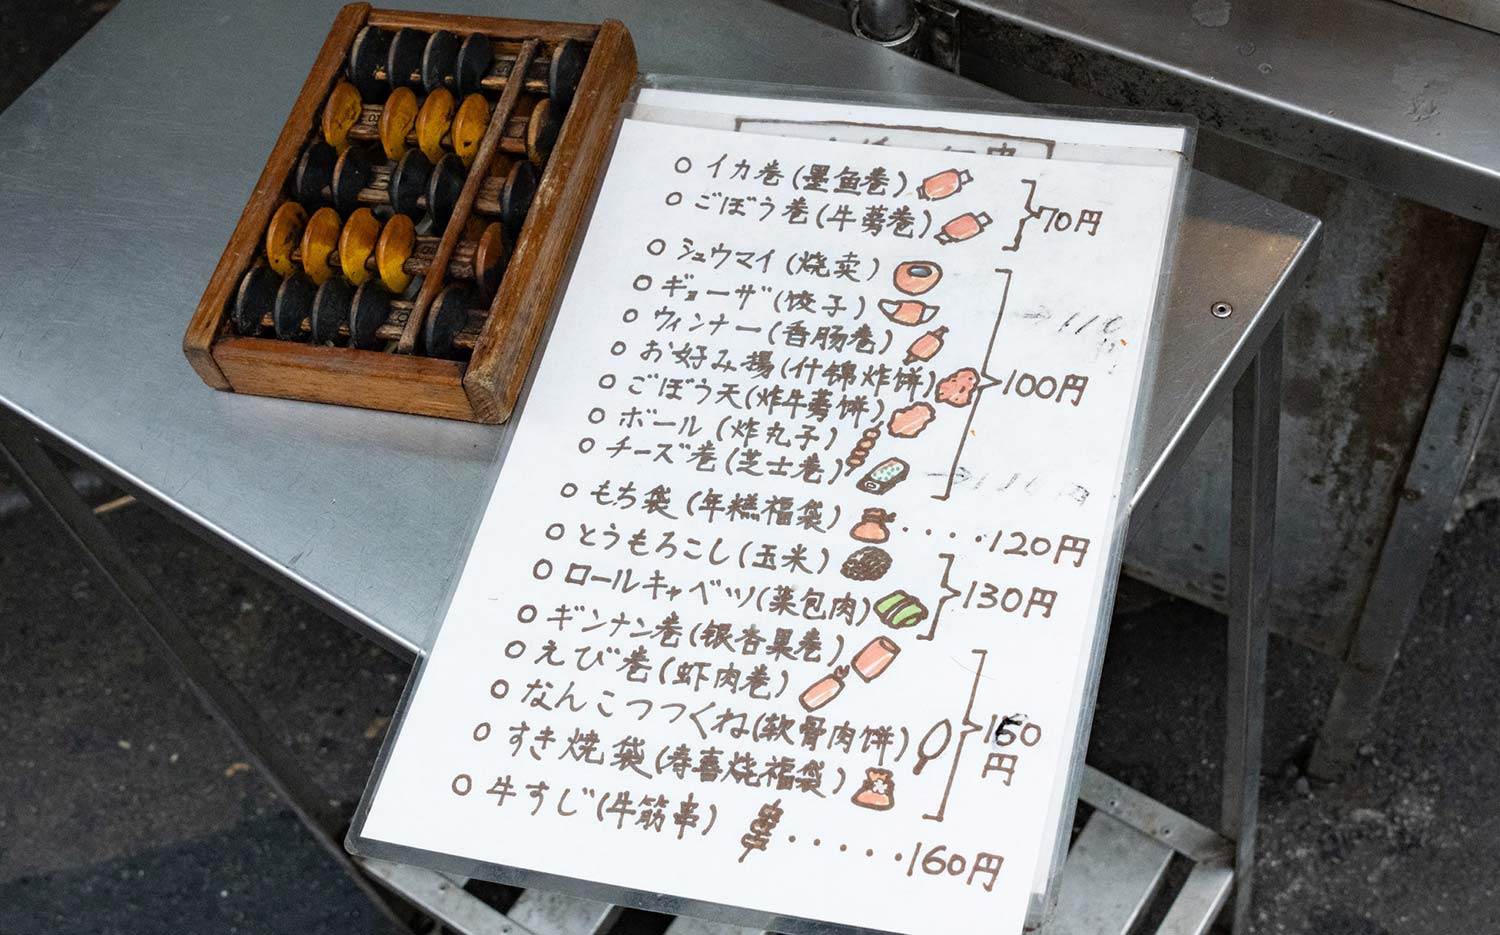 ○ イカ巻 (墨鱼巻)
○ ごぼう巻 (牛蒡巻)
70円
○ シュウマイ (烧卖)
○ ギョーザ (饺子)
○ ウィンナー (香肠巻)
○ お好み揚 (什锦炸饼)
○ ごぼう天 (炸牛蒡饼)
○ ボール (炸丸子)
○ チーズ巻 (芝士巻)
100円
○ もち袋 (年糕福袋) ‥‥120円
○ とうもろこし (玉米)
○ ロールキャベツ (菜包肉)
130円
○ ギンナン巻 (银杏果巻)
○ えび巻 (虾肉巻)
○ なんこつつくね (软骨肉饼)
○ すき焼袋 (寿喜烧福袋)
150円
○ 牛すじ (牛筋串) ‥‥‥160円